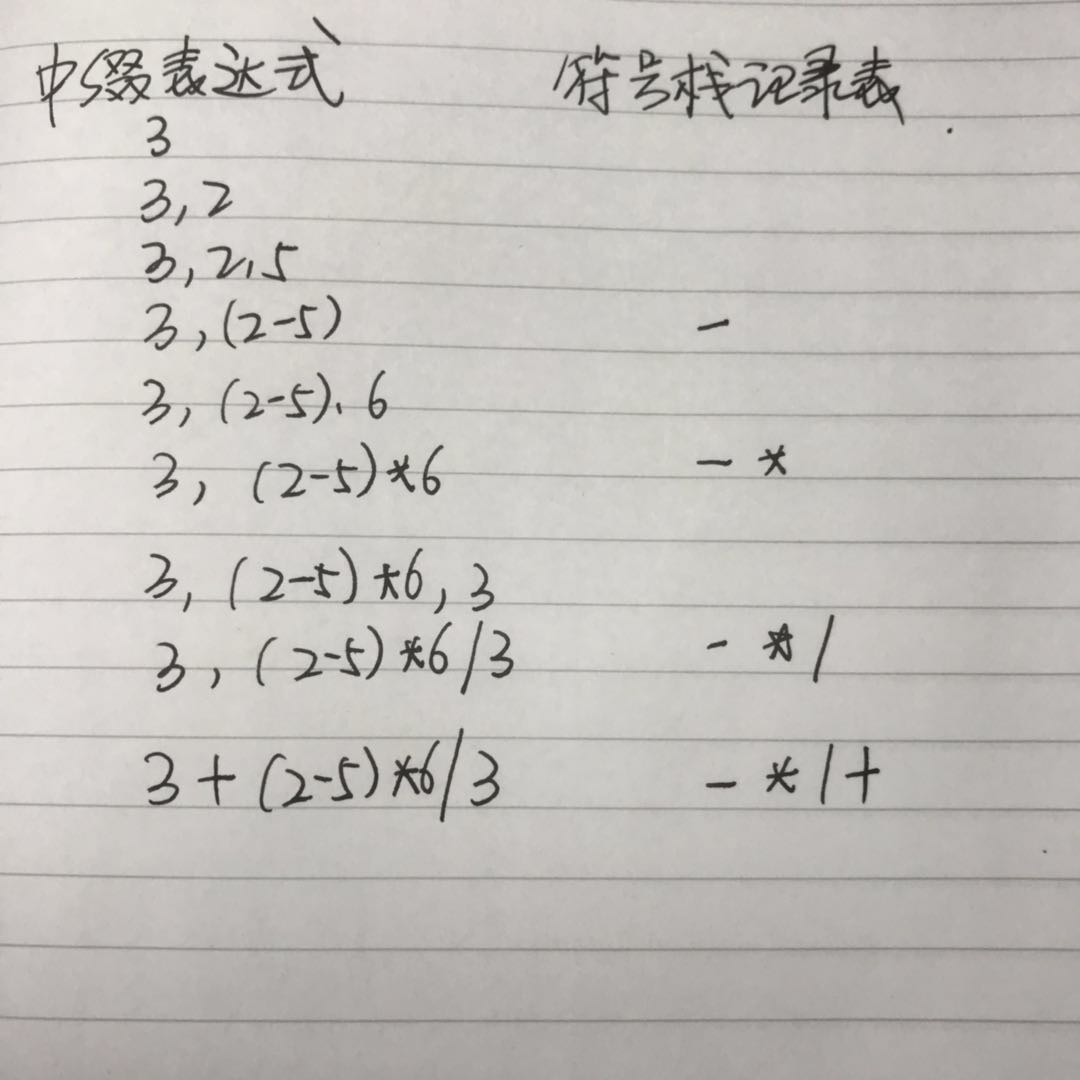 中缀表达式 符号栈记录表
3
3,2
3,2,5
3,(2-5) -
3,(2-5),6
3,(2-5)*6 - *
3,(2-5)*6,3
3,(2-5)*6/3 - * /
3+(2-5)*6/3 - * / +